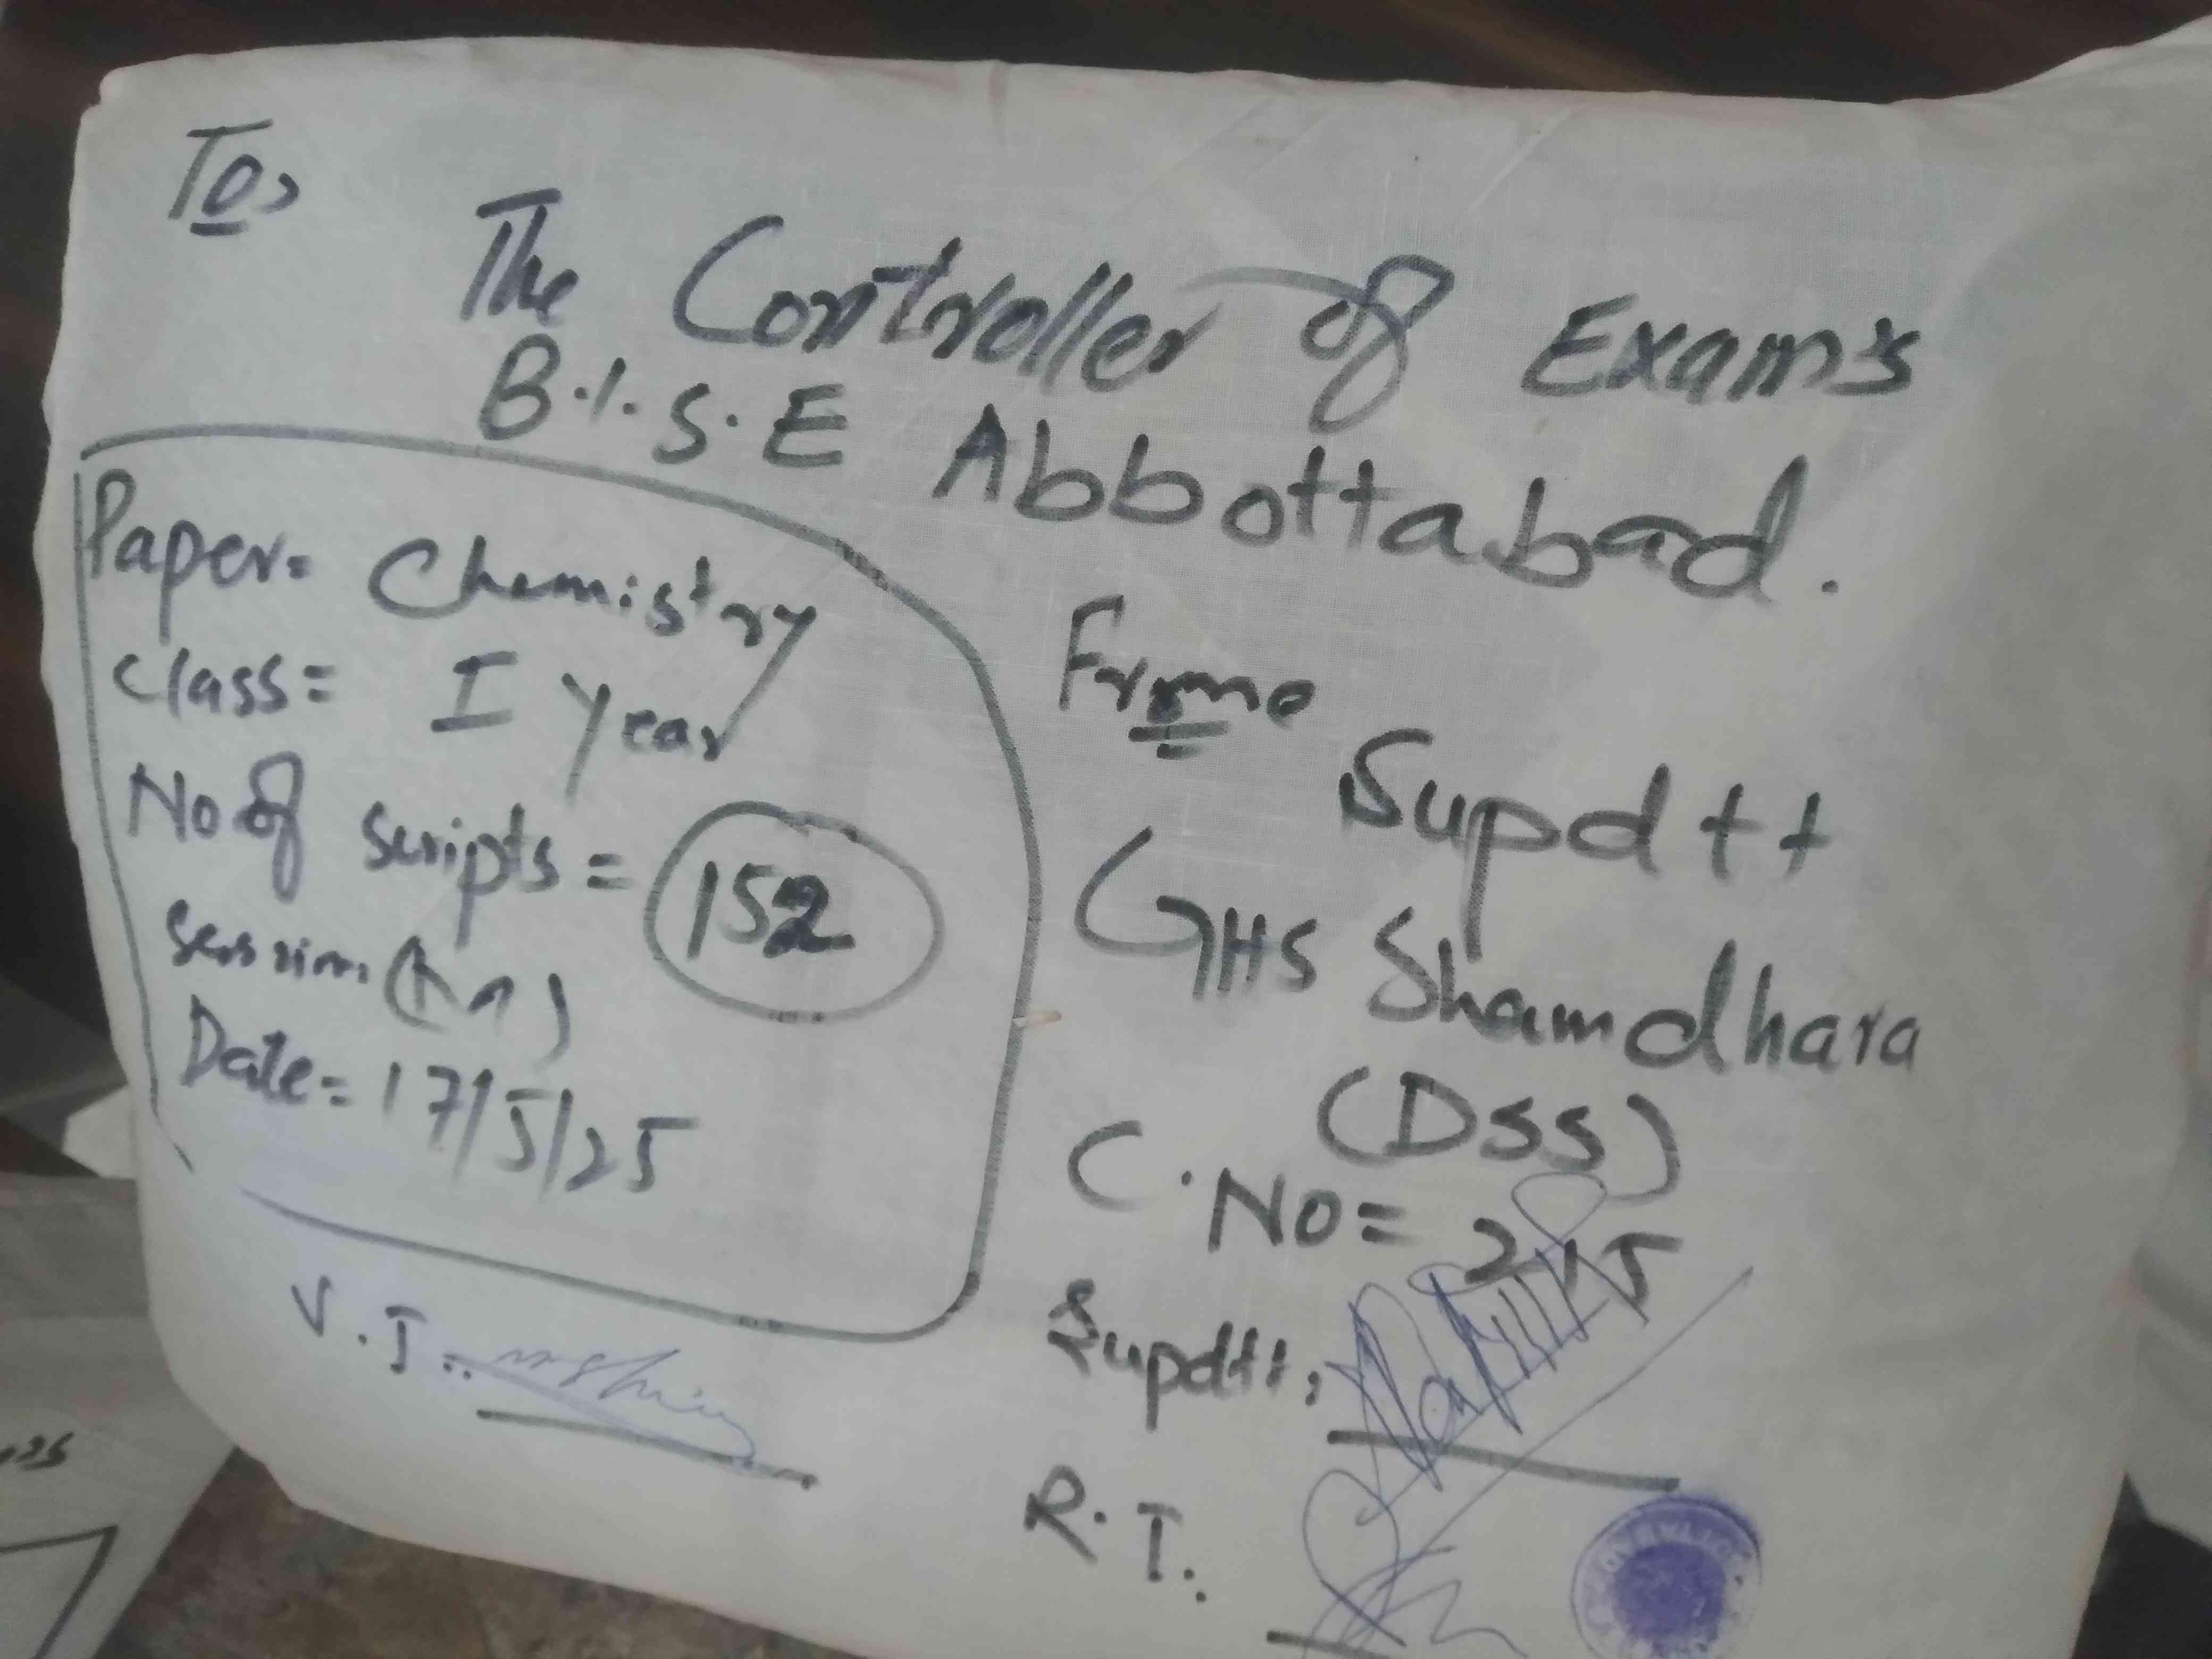 To,
The Controller of Exam's
B.I.S.E Abbottabad.
Paper= Chemistry
Class= I Year
No of scripts = 152
Session (A)
Date= 17/5/25
V.I.
From
Supdtt
GHS Shamdhara
(DSS)
C.No= 215
Supdtt,
R.I.